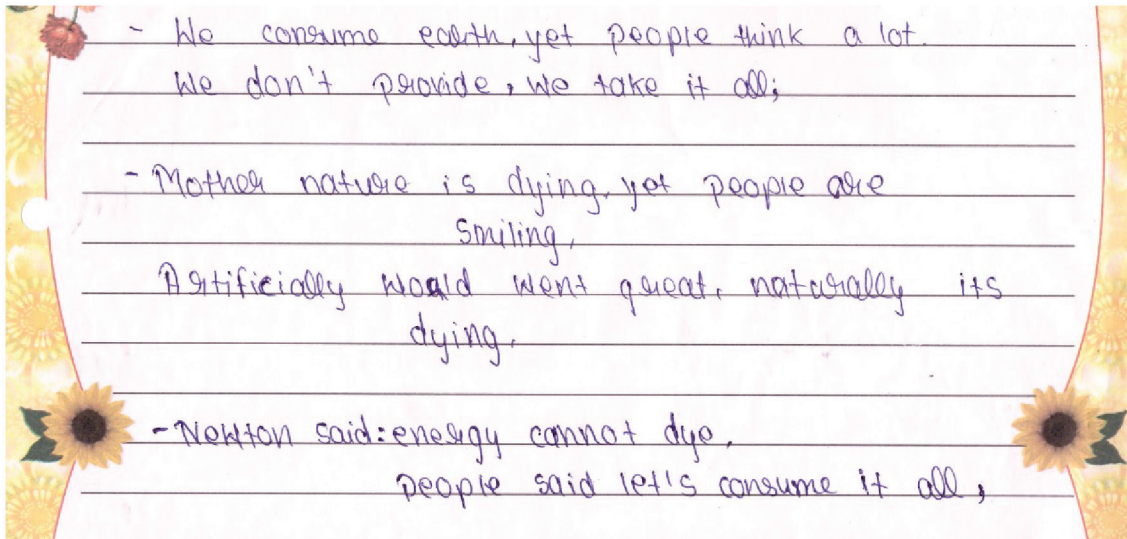 - We consume earth, yet people think a lot.
We don't provide, we take it all;
- Mother nature is dying, yet people are
smiling,
Artificially world went great, naturally its
dying,
- Newton said: energy cannot dye,
people said let's consume it all,